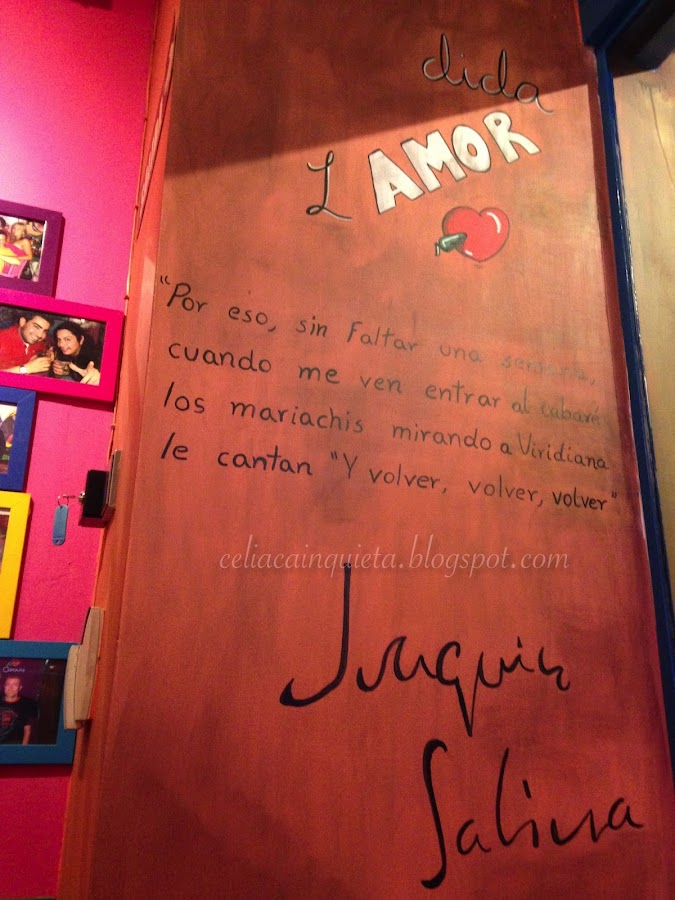 dida
L AMOR
"Por eso, sin Faltar una semana,
cuando me ven entrar al cabaré
los mariachis mirando a Viridiana
le cantan "Y volver, volver, volver"
celiacainquieta.blogspot.com
Joaquin
Sabina